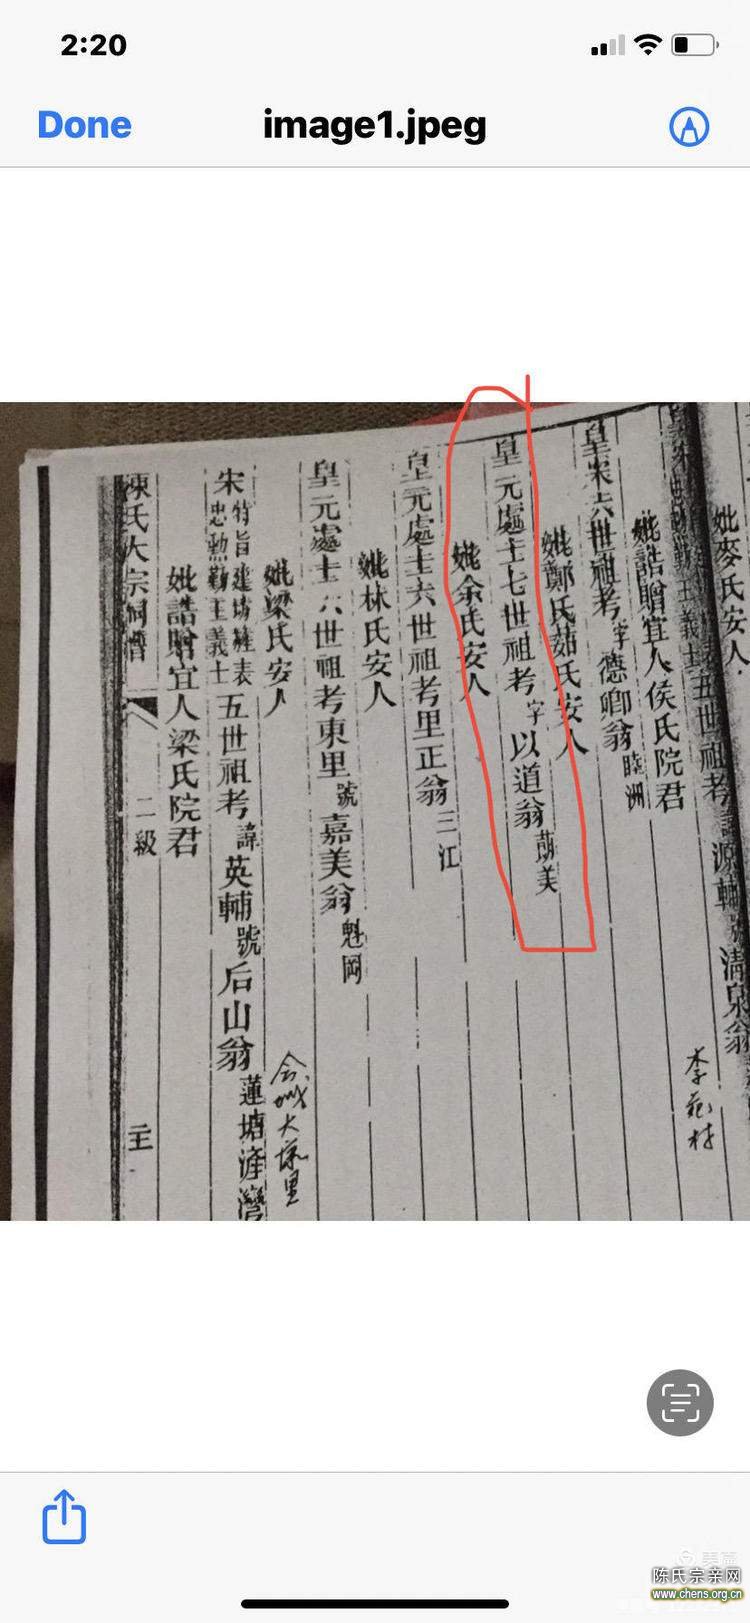 2:20
Done
image1.jpeg
妣麥氏安人
五世祖考諱源輔號清泉翁
李苑村
妣誥贈宜人侯氏院君
皇宋六世祖考字德卿翁睦洲
妣鄭氏茹氏安人
皇元處士七世祖考字以道翁萠美
妣余氏安人
皇元處士六世祖考里正翁三江
妣林氏安人
皇元處士六世祖考東里號嘉美翁魁岡
妣梁氏安人
宋特旨建坊旌表忠勳勤王義士五世祖考諱英輔號后山翁蓮塘滻灣
大塚里
妣誥贈宜人梁氏院君
陳氏大宗祠譜
二級
陈氏宗亲网
www.chens.org.cn